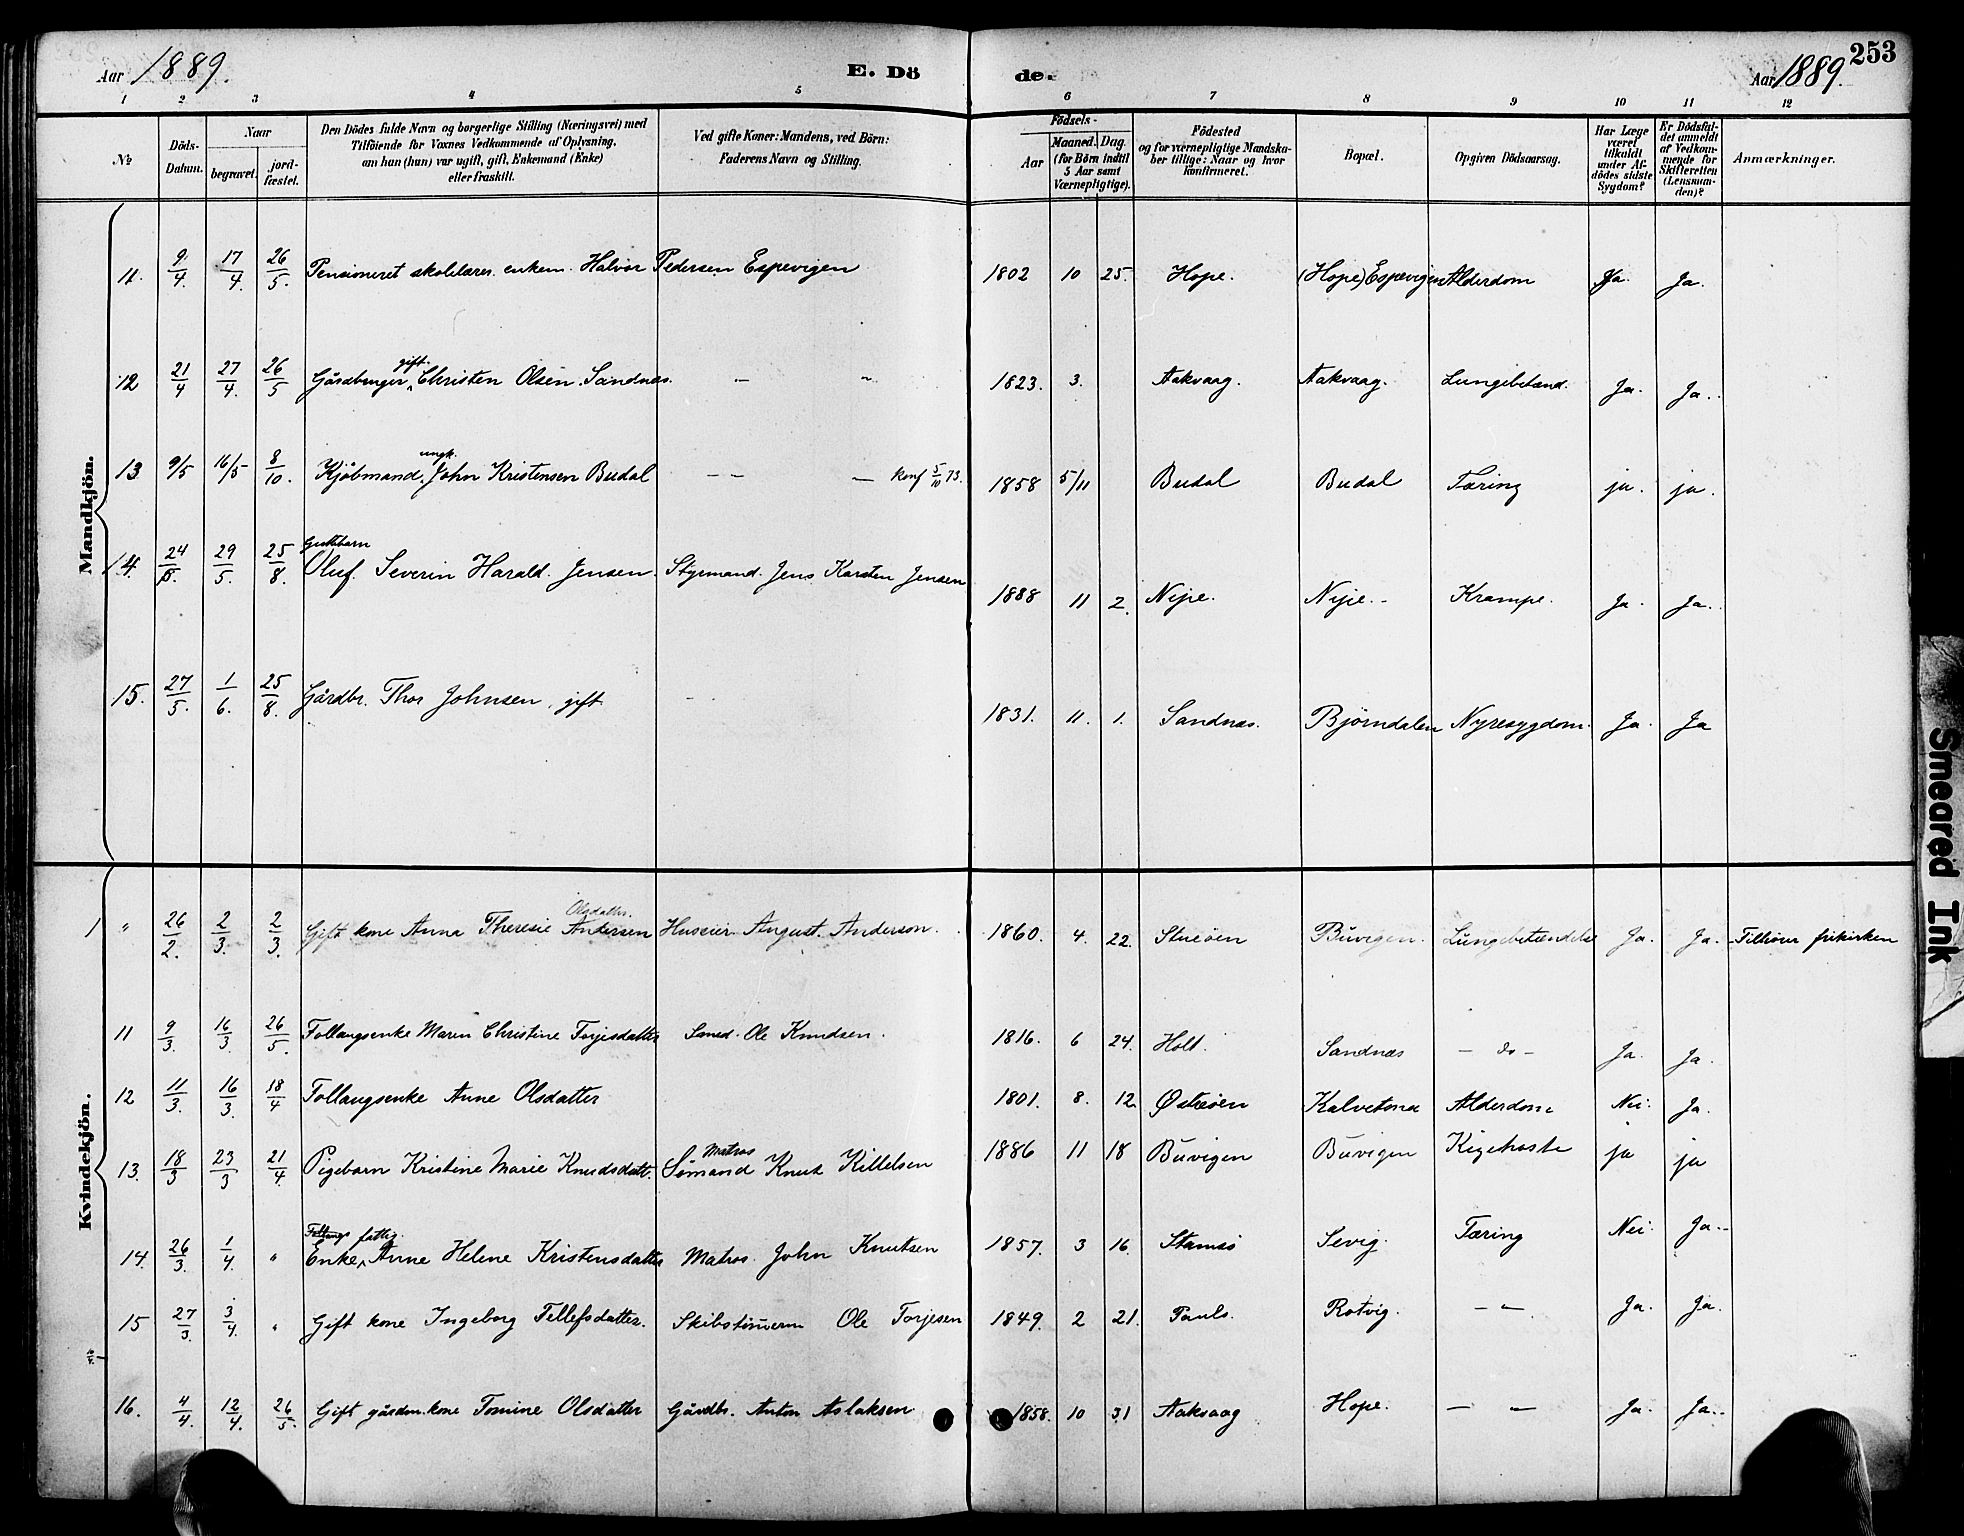 Aar 1889. E. Dö de. Aar 1889. 253
1 2 3 4 5 6 7 8 9 10 11 12
No
Döds-Datum.
Naar begravet. jordfæstet.
Den Dödes fulde Navn og borgerlige Stilling (Næringsvei) med Tilföiende for Voxnes Vedkommende af Oplysning, om han (hun) var ugift, gift, Enkemand (Enke) eller fraskilt.
Ved gifte Koner: Mandens, ved Börn: Faderens Navn og Stilling.
Födsels-
Aar Maaned. Dag. (for Börn indtil 5 Aar samt Værnepligtige).
Födested og for værnepligtige Mandskaber tillige: Naar og hvor konfirmeret.
Bopæl.
Opgiven Dödsaarsag.
Har Læge været tilkaldt under Afdödes sidste Sygdom?
Er Dödsfaldet anmeldt af Vedkommende for Skifteretten (Lensmanden)?
Anmærkninger.
Mandkjön.
11. 9/4 17/4. 26/5. Pensioneret skolelærer. enkem. Halvor Pedersen Espevigen 1802 10 25. Hope. (Hope) Espevigen Alderdom Ja. Ja.
gift.
12 21/4 27/4. 26/5 Gårdbruger Christen Olsen Sandnæs. — „ 1823. 3. Aakvaag. Aakvaag. Lungebetænd. Ja. Ja.
ungk.
13 9/5 16/5 8/10. Kjöbmand, John Kristensen Budal — — — konf 5/10 73. 1858 5/11 Budal Budal Tæring ja. ja.
Guttebarn
14. 24/5. 29/5. 25/8. Oluf Severin Harald Jensen. Styrmand. Jens Karsten Jensen 1888 11 2. Nipe. Nipe. Krampe. Ja. Ja.
15. 27/5. 1/6. 25/8. Gårdbr. Thor Johnsen, gift 1831. 11. 1. Sandnæs. Björndalen Nyresygdom. Ja. Ja
Kvindekjön.
Olsdatter.
1 „ 26/2. 2/3. 2/3. Gift kone Anna Theresie Andersen Huseier August Anderson. 1860. 4. 22. Stueöen Buvigen. Lungebetændelse Ja. Ja. Tilhörer frikirken
11 9/3. 16/3 26/5. Follaugsenke Maren Christine Torjesdatter Smed. Ole Knudsen. 1816. 6 24. Holt. Sandnæs — do — Ja. Ja.
12 11/3. 16/3. 18/4 Follaugsenke Anne Olsdatter 1801. 8. 12 Östeöen Kalvetona Alderdom Nei. Ja.
Matros
13. 18/3 23/3 21/4 Pigebarn Kristine Marie Knudsdatt. Sömand Knut Kittelsen 1886 11 18 Buvigen Buvigen Kigehoste ja ja
Follaugs fattig.
14. 26/3. 1/4. „ Enke, Anne Helene Kristensdatter Matros. John Knutsen 1857. 3 16. Stamsö Sevig. Tæring Nei. Ja.
15 27/3. 3/4. „ Gift kone Ingeborg Tellefsdatter. Skibstömerm Ole Torjesen 1849. 2 21. Pauls. Rotvig. — „ — Ja. Ja.
16. 4/4. 12/4. 26/5. Gift gårdm.kone Tomine Olsdatter Gårdbr. Anton Aslaksen 1858. 10 31 Aakvaag Hope. — „ — Ja. Ja.
Smeared Ink